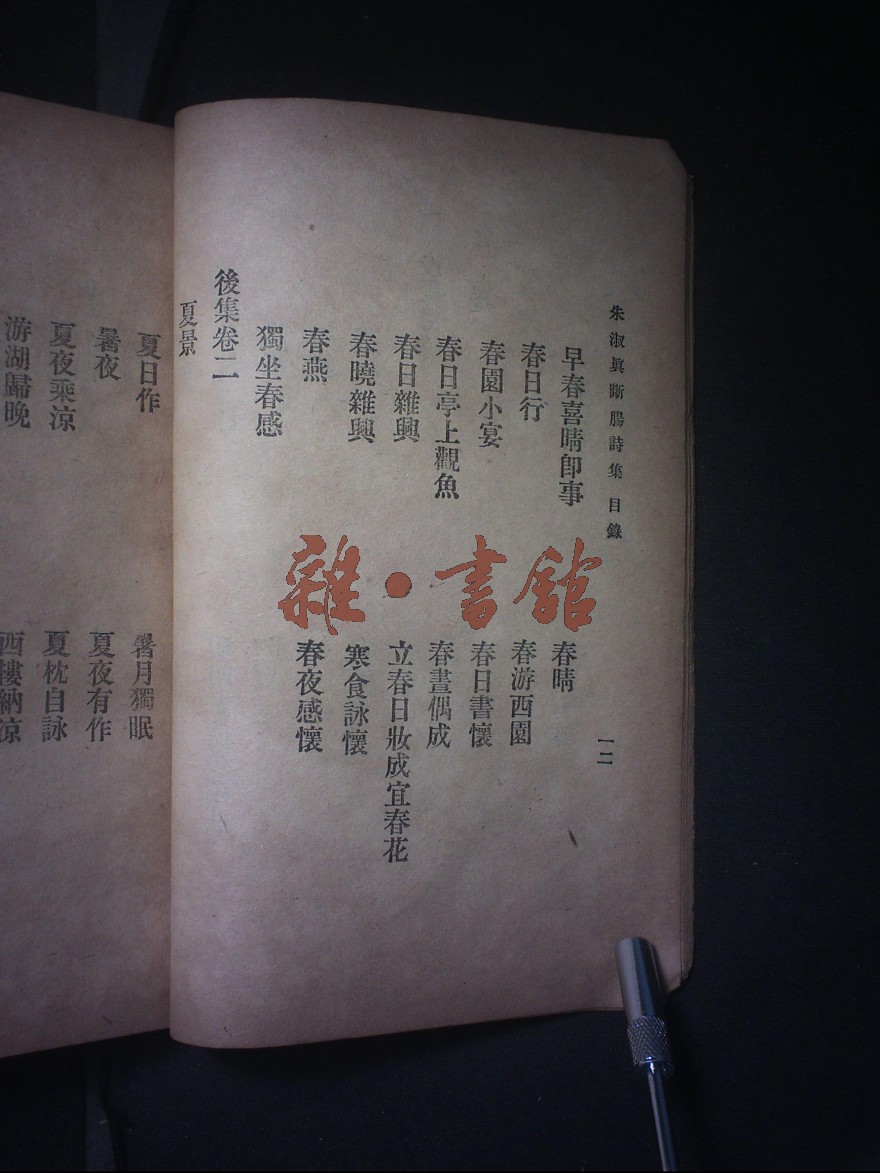 朱淑眞斷腸詩集 目錄
一二
早春喜晴卽事
春晴
春日行
春游西園
春園小宴
春日書懷
春日亭上觀魚
春晝偶成
春日雜興
立春日妝成宜春花
春曉雜興
寒食詠懷
春燕
春夜感懷
獨坐春感
後集卷二
夏景
夏日作
暑月獨眠
暑夜
夏夜有作
夏夜乘涼
夏枕自詠
游湖歸晚
西樓納涼
雜·書館